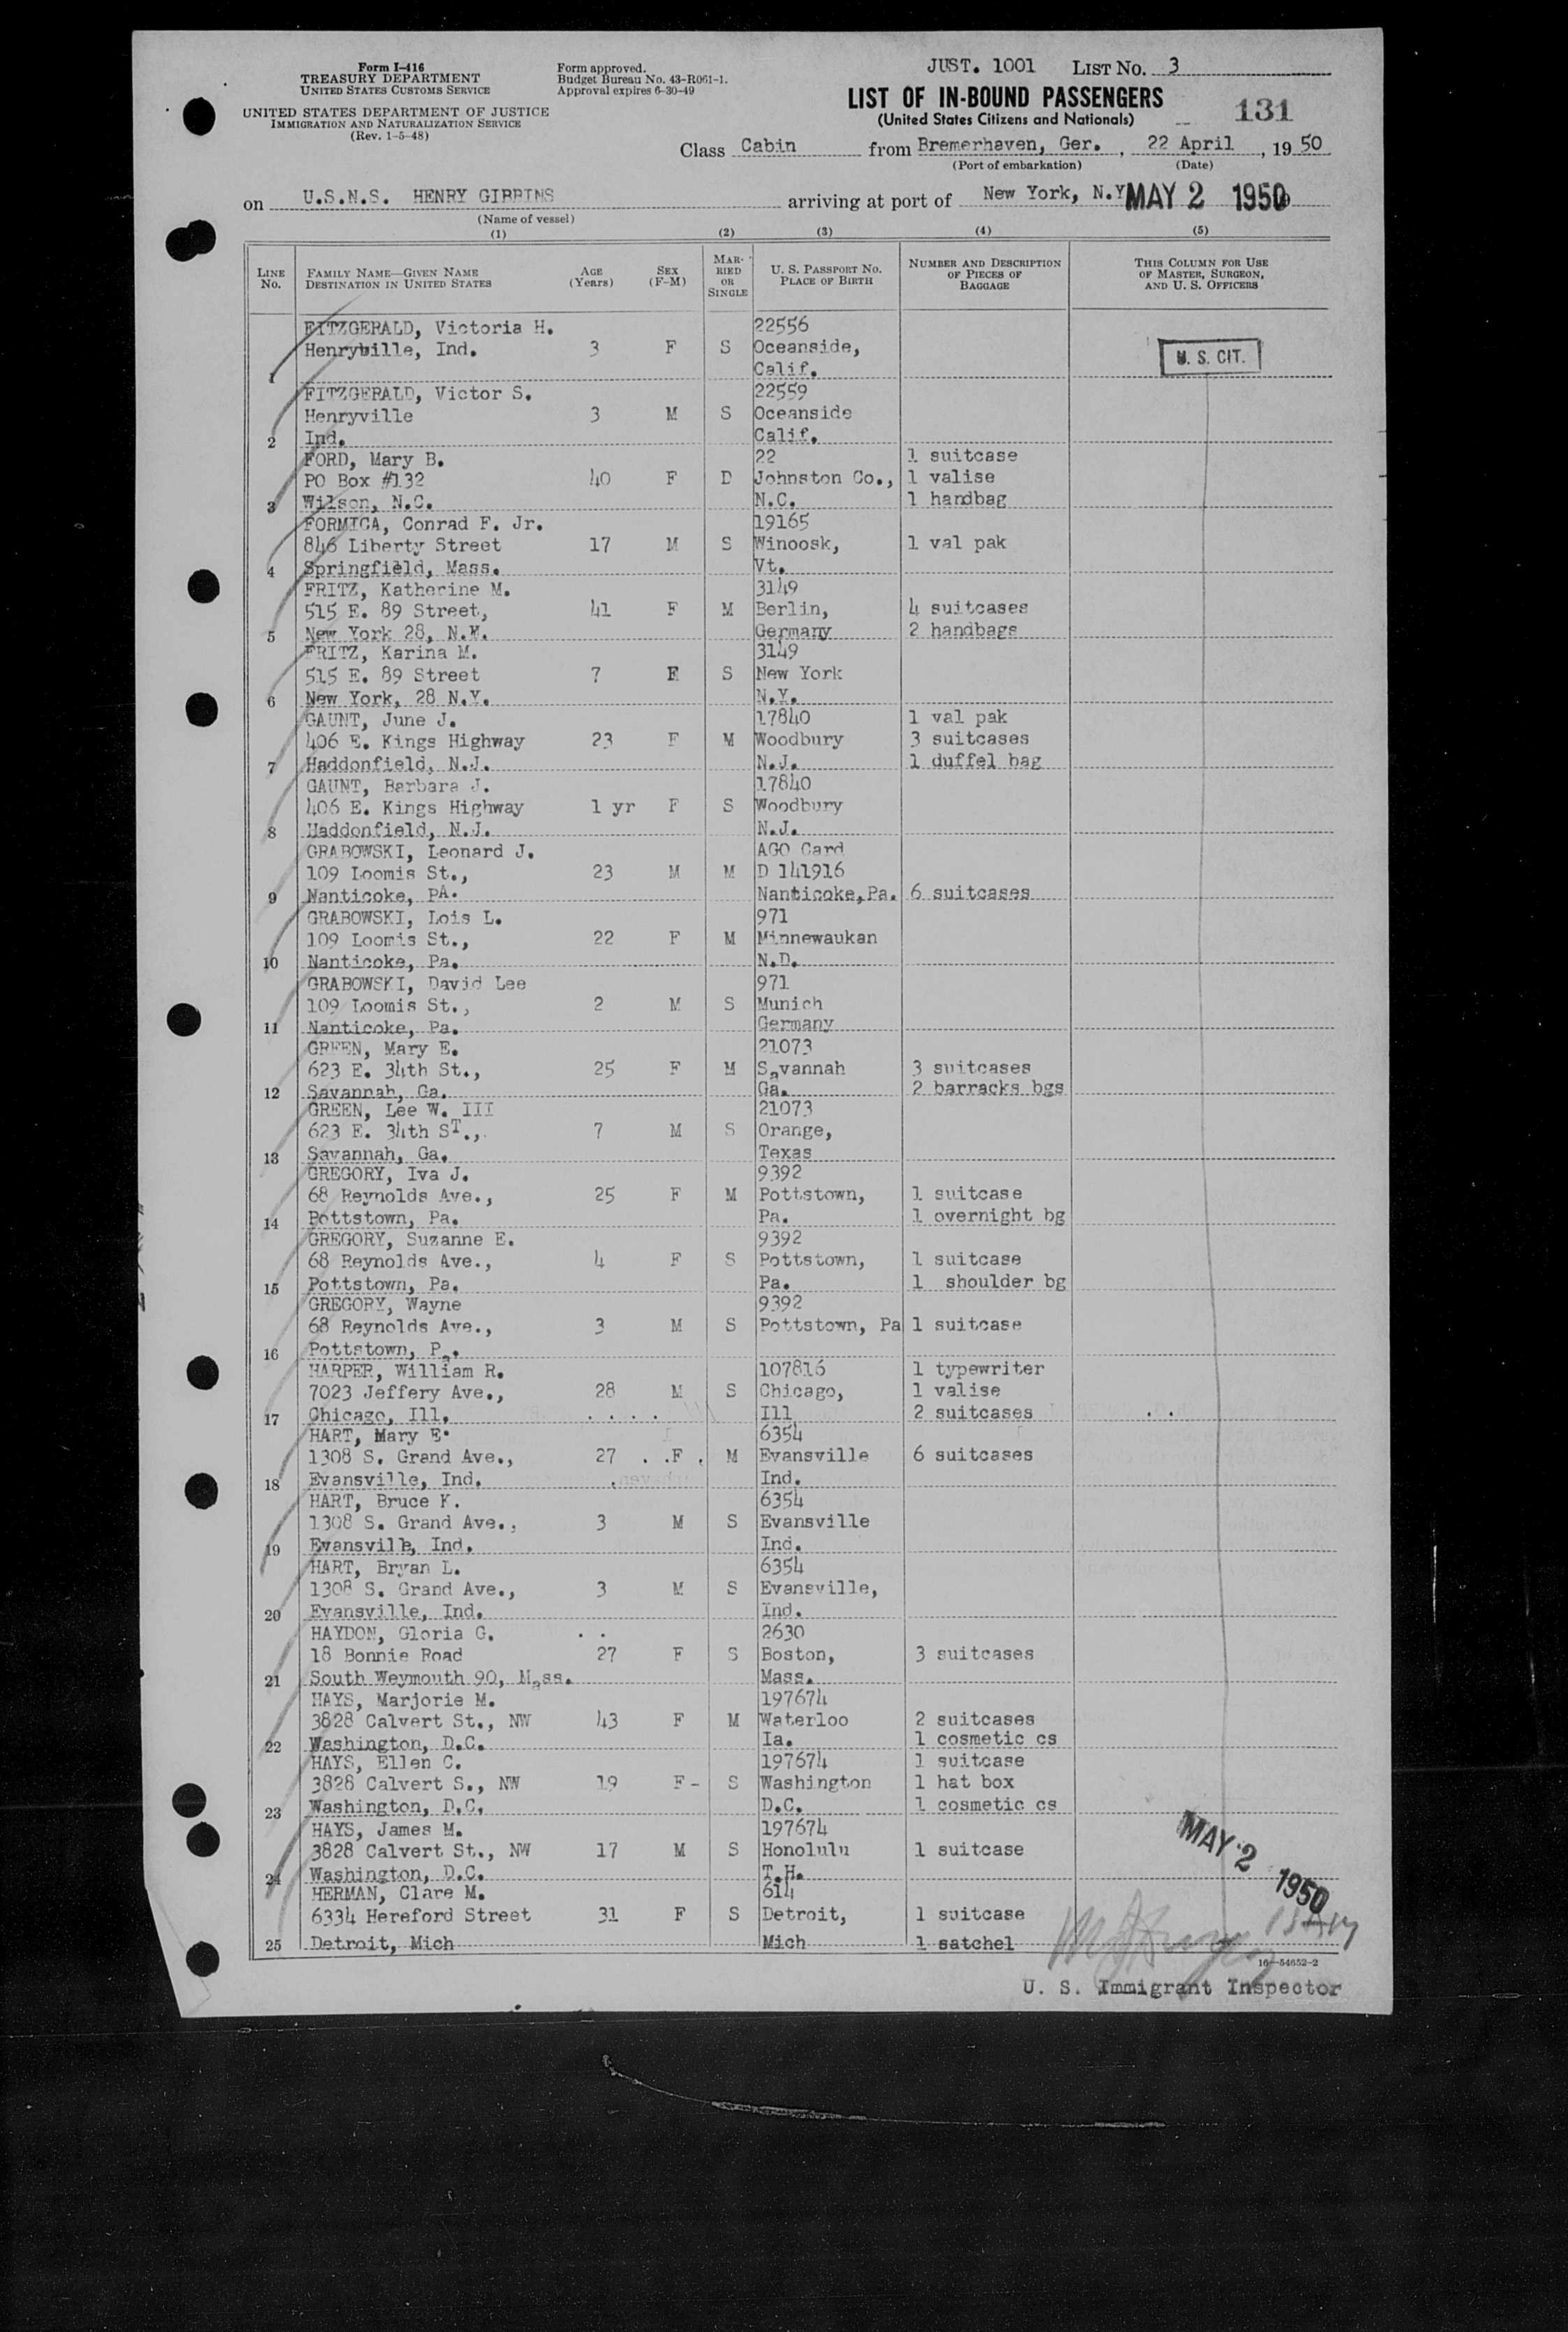 Form I-416
TREASURY DEPARTMENT
UNITED STATES CUSTOMS SERVICE
UNITED STATES DEPARTMENT OF JUSTICE
IMMIGRATION AND NATURALIZATION SERVICE
(Rev. 1-5-48)
Form approved.
Budget Bureau No. 43-R061-1.
Approval expires 6-30-49
JUST. 1001 LIST NO. 3
LIST OF IN-BOUND PASSENGERS
(United States Citizens and Nationals)
131
Class Cabin from Bremerhaven, Ger., 22 April, 1950
(Port of embarkation) (Date)
on U.S.N.S. HENRY GIBBINS arriving at port of New York, N.Y MAY 2 1950
(Name of vessel)
(1) (2) (3) (4) (5)
LINE NO. FAMILY NAME—GIVEN NAME DESTINATION IN UNITED STATES AGE (Years) SEX (F-M) MARRIED OR SINGLE U. S. PASSPORT NO. PLACE OF BIRTH NUMBER AND DESCRIPTION OF PIECES OF BAGGAGE THIS COLUMN FOR USE OF MASTER, SURGEON, AND U. S. OFFICERS
FITZGERALD, Victoria H. 22556
Henryville, Ind. 3 F S Oceanside, U. S. CIT.
1 Calif.
FITZGERALD, Victor S. 22559
Henryville 3 M S Oceanside
2 Ind. Calif.
FORD, Mary B. 22 1 suitcase
PO Box #132 40 F D Johnston Co., 1 valise
3 Wilson, N.C. N.C. 1 handbag
FORMICA, Conrad F. Jr. 19165
846 Liberty Street 17 M S Winoosk, 1 val pak
4 Springfield, Mass. Vt.
FRITZ, Katherine M. 3149
515 E. 89 Street, 41 F M Berlin, 4 suitcases
5 New York 28, N.Y. Germany 2 handbags
FRITZ, Karina M. 3149
515 E. 89 Street 7 F S New York
6 New York, 28 N.Y. N.Y.
GAUNT, June J. 17840 1 val pak
406 E. Kings Highway 23 F M Woodbury 3 suitcases
7 Haddonfield, N.J. N.J. 1 duffel bag
GAUNT, Barbara J. 17840
406 E. Kings Highway 1 yr F S Woodbury
8 Haddonfield, N.J. N.J.
GRABOWSKI, Leonard J. AGO Card
109 Loomis St., 23 M M D 141916
9 Nanticoke, PA. Nanticoke,Pa. 6 suitcases
GRABOWSKI, Lois L. 971
109 Loomis St., 22 F M Minnewaukan
10 Nanticoke, Pa. N.D.
GRABOWSKI, David Lee 971
109 Loomis St., 2 M S Munich
11 Nanticoke, Pa. Germany
GREEN, Mary E. 21073
623 E. 34th St., 25 F M Savannah 3 suitcases
12 Savannah, Ga. Ga. 2 barracks bgs
GREEN, Lee W. III 21073
623 E. 34th ST., 7 M S Orange,
13 Savannah, Ga. Texas
GREGORY, Iva J. 9392
68 Reynolds Ave., 25 F M Pottstown, 1 suitcase
14 Pottstown, Pa. Pa. 1 overnight bg
GREGORY, Suzanne E. 9392
68 Reynolds Ave., 4 F S Pottstown, 1 suitcase
15 Pottstown, Pa. Pa. 1 shoulder bg
GREGORY, Wayne 9392
68 Reynolds Ave., 3 M S Pottstown, Pa 1 suitcase
16 Pottstown, Pa.
HARPER, William R. 107816 1 typewriter
7023 Jeffery Ave., 28 M S Chicago, 1 valise
17 Chicago, Ill. Ill 2 suitcases
HART, Mary E. 6354
1308 S. Grand Ave., 27 F M Evansville 6 suitcases
18 Evansville, Ind. Ind.
HART, Bruce K. 6354
1308 S. Grand Ave., 3 M S Evansville
19 Evansville, Ind. Ind.
HART, Bryan L. 6354
1308 S. Grand Ave., 3 M S Evansville,
20 Evansville, Ind. Ind.
HAYDON, Gloria G. 2630
18 Bonnie Road 27 F S Boston, 3 suitcases
21 South Weymouth 90, Mass. Mass.
HAYS, Marjorie M. 197674
3828 Calvert St., NW 43 F M Waterloo 2 suitcases
22 Washington, D.C. Ia. 1 cosmetic cs
HAYS, Ellen C. 197674 1 suitcase
3828 Calvert S., NW 19 F - S Washington 1 hat box
23 Washington, D.C. D.C. 1 cosmetic cs
HAYS, James M. 197674
3828 Calvert St., NW 17 M S Honolulu 1 suitcase
24 Washington, D.C. T.H.
HERMAN, Clare M. 614
6334 Hereford Street 31 F S Detroit, 1 suitcase
25 Detroit, Mich Mich 1 satchel
MAY 2 1950
16—54652-2
U. S. Immigrant Inspector